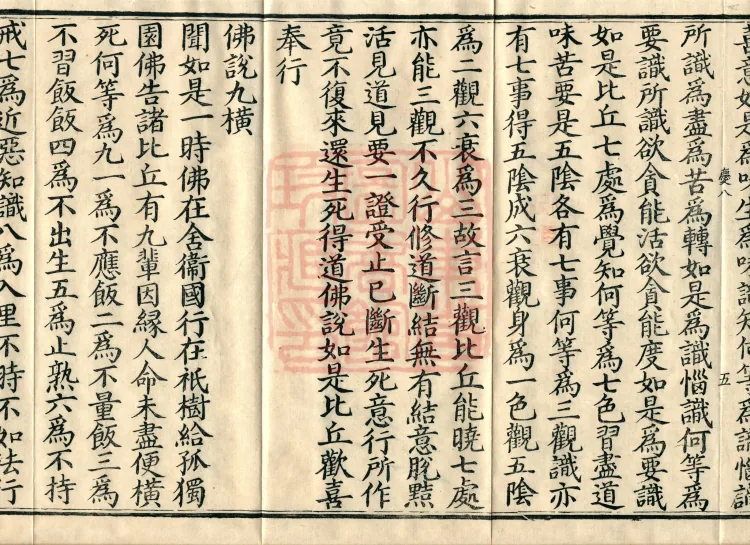 喜意如是爲味生爲味識知何等爲識惱識
所識爲盡爲苦爲轉如是爲識惱識何等爲
慶八
五
要識所識欲貪能活欲貪能度如是爲要識
如是比丘七處爲覺知何等爲七色習盡道
味苦要是五陰各有七事何等爲三觀識亦
有七事得五陰成六衰觀身爲一色觀五陰
爲二觀六衰爲三故言三觀比丘能曉七處
亦能三觀不久行修道斷結無有結意脫黠
活見道見要一證受止已斷生死意行所作
竟不復來還生死得道佛說如是比丘歡喜
奉行
佛說九橫
聞如是一時佛在舍衞國行在祇樹給孤獨
園佛告諸比丘有九輩因緣人命未盡便橫
死何等爲九一爲不應飯二爲不量飯三爲
不習飯飯四爲不出生五爲止熟六爲不持
戒七爲近惡知識八爲入里不時不如法行